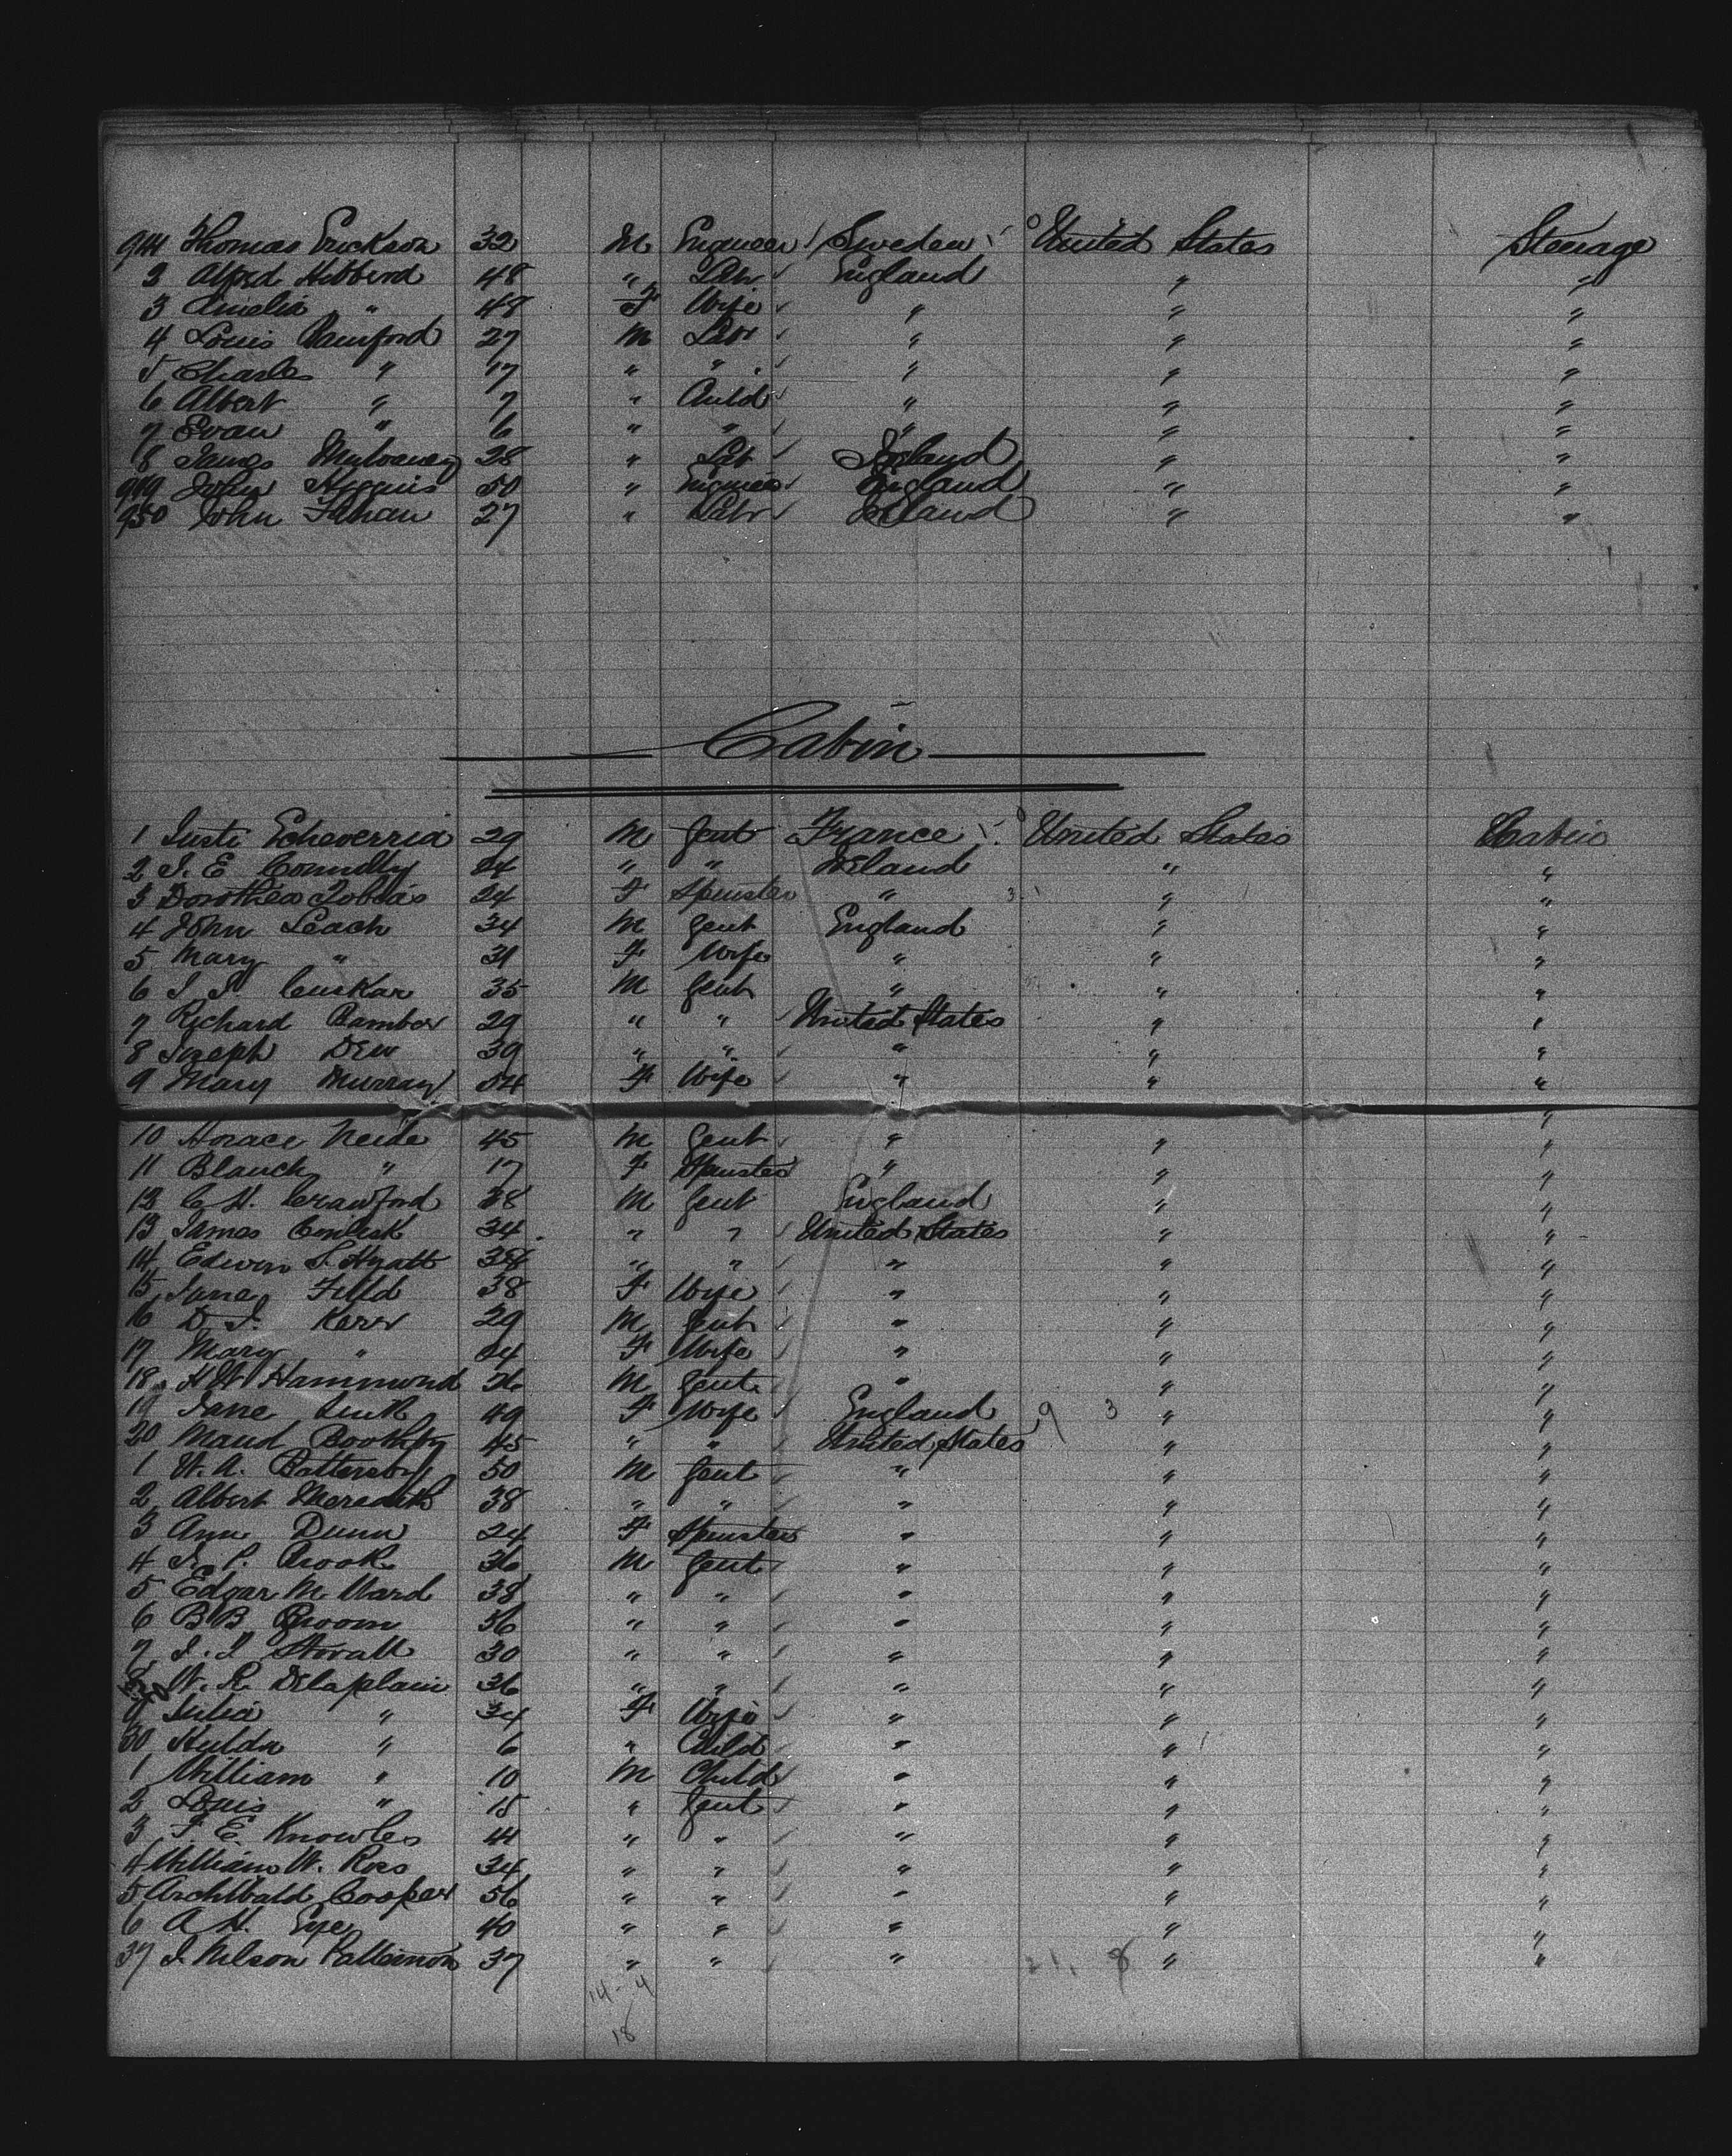 941 Thomas Erickson 32 M Engineer Sweden United States Steerage
2 Alfred Hibberd 48 " Labr England " "
3 Amelia " 48 F Wife " " "
4 Louis Bamford 27 M Labr " " "
5 Charles " 17 " " " " "
6 Albert " 7 " Child " " "
7 Evan " 6 " " " " "
8 James Mulvaney 28 " Labr Ireland " "
949 John Higgins 50 " Engineer England " "
950 John 27 " Labr Ireland " "
Cabin
1 Echeverria 29 M Gent France United States Cabin
2 J. E. Connolly 24 " " Ireland " "
3 Dorothea Tobias 24 F Spinster " " "
4 John Leach 34 M Gent England " "
5 Mary " 31 F Wife " " "
6 35 M Gent " " "
7 Richard Bamber 29 " " United States " "
8 Joseph Dew 39 " " " " "
9 Mary Murray 54 F Wife " " "
10 Horace Neide 45 M Gent " " "
11 Blanch " 17 F Spinster " " "
12 C. H. Crawford 38 M Gent England " "
13 James 34 " " United States " "
14 Edwin S. Hyatt 34 " " " " "
15 Jane Field 38 F Wife " " "
16 D. J. Kerr 29 M Gent " " "
17 Mary " 24 F Wife " " "
18 H W Hammond 26 M Gent " " "
19 Jane 49 F Wife England 9 3 " "
20 Maud Boothby 45 " " United States " "
1 W. A. Battersby 50 M Gent " " "
2 Albert Meredith 38 " " " " "
3 Ann Dunn 24 F Spinster " " "
4 J. P. Brook 36 M Gent " " "
5 Edgar M. Ward 38 " " " " "
6 B B Broom 56 " " " " "
7 J. J. Stovall 30 " " " " "
8 W. R. Delaplain 36 " " " " "
9 Julia " 34 F Wife " " "
30 Hulda " 6 " Child " " "
1 William " 10 M Child " " "
2 Louis " 15 " Gent " " "
3 F. E. Knowles 41 " " " " "
4 William W. Ross 34 " " " " "
5 Archibald Cooper 56 " " " " "
6 A. H. Eye 40 " " " " "
37 J. Nelson Patterson 37 " " " 21. 8 " "
14 - 4
18